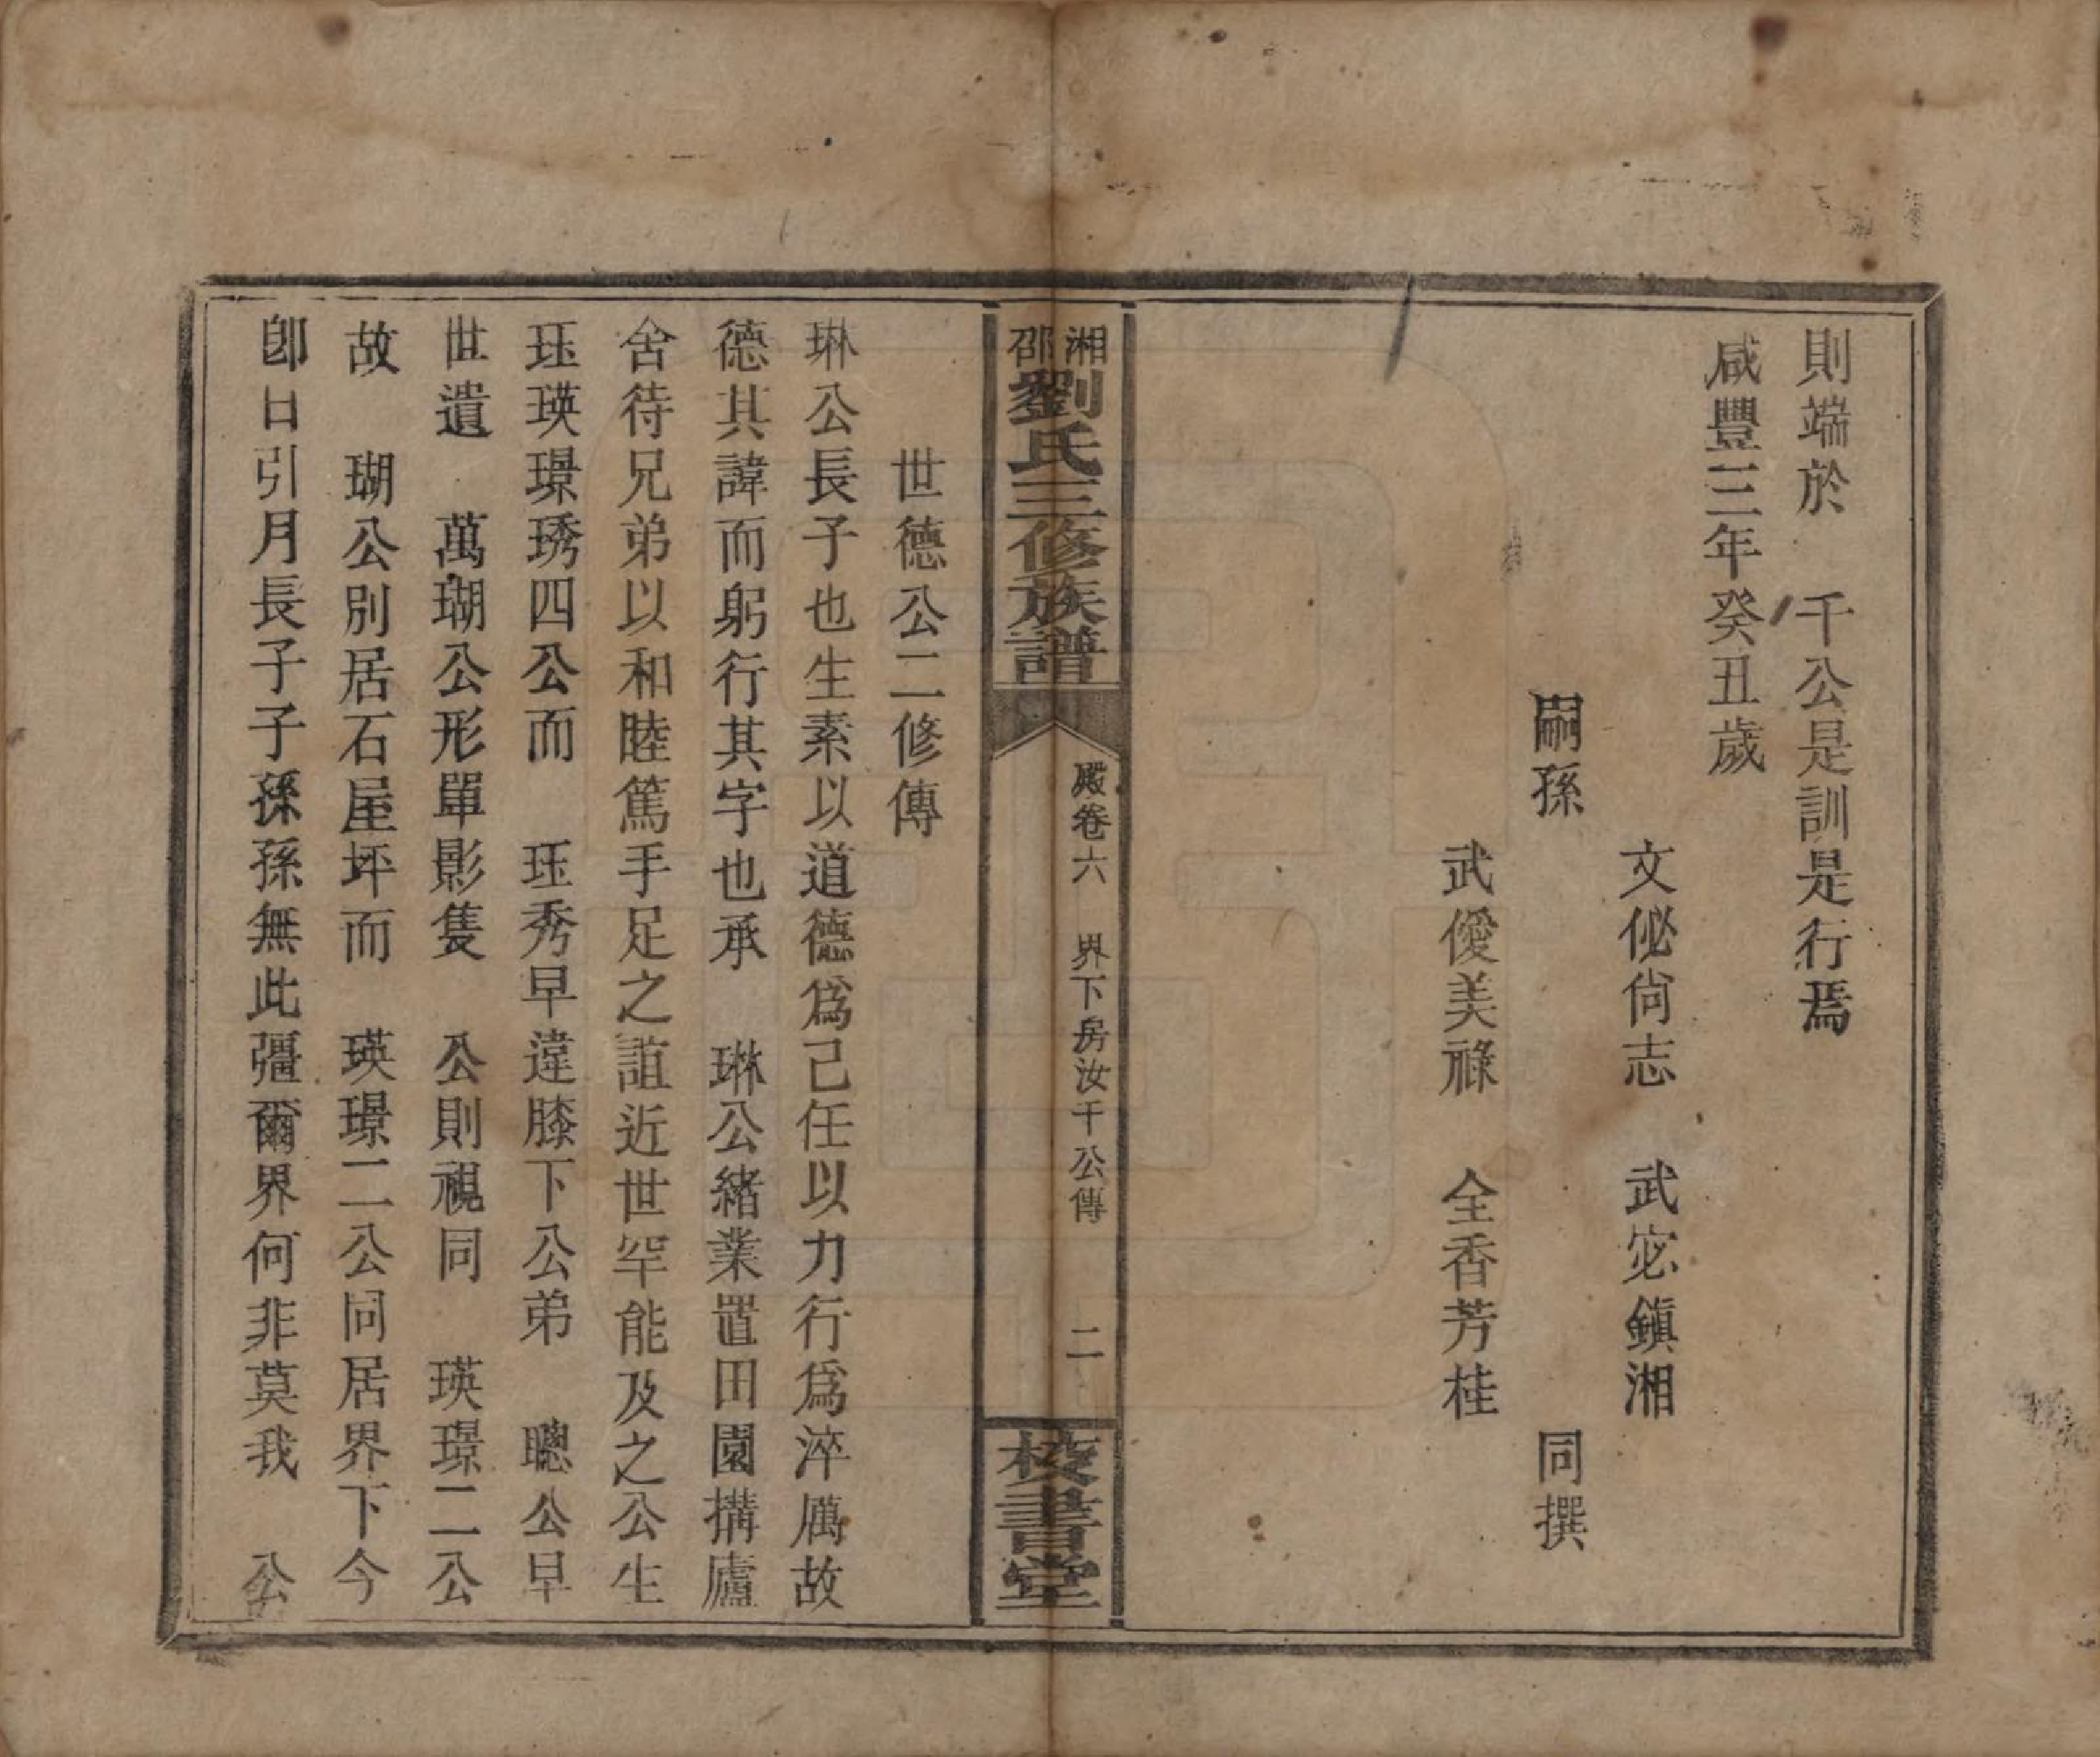 則端於　千公是訓是行焉
咸豐三年癸丑歲
文佖尙志　武宓鎭湘
嗣孫　同撰
武優美祿　全香芳桂
湘邵劉氏三修族譜
殿卷六　界下房汝千公傳　二
校書堂
世德公二修傳
琳公長子也生素以道德爲己任以力行爲淬厲故
德其諱而躬行其字也承　琳公緒業置田園搆廬
舍待兄弟以和睦篤手足之誼近世罕能及之公生
珏瑛璟琇四公而　珏秀早違膝下公弟　聰公早
世遺　萬瑚公形單影隻　公則視同　瑛璟二公
故　瑚公別居石屋坪而　瑛璟二公同居界下今
卽日引月長子子孫孫無此彊爾界何非莫我　公